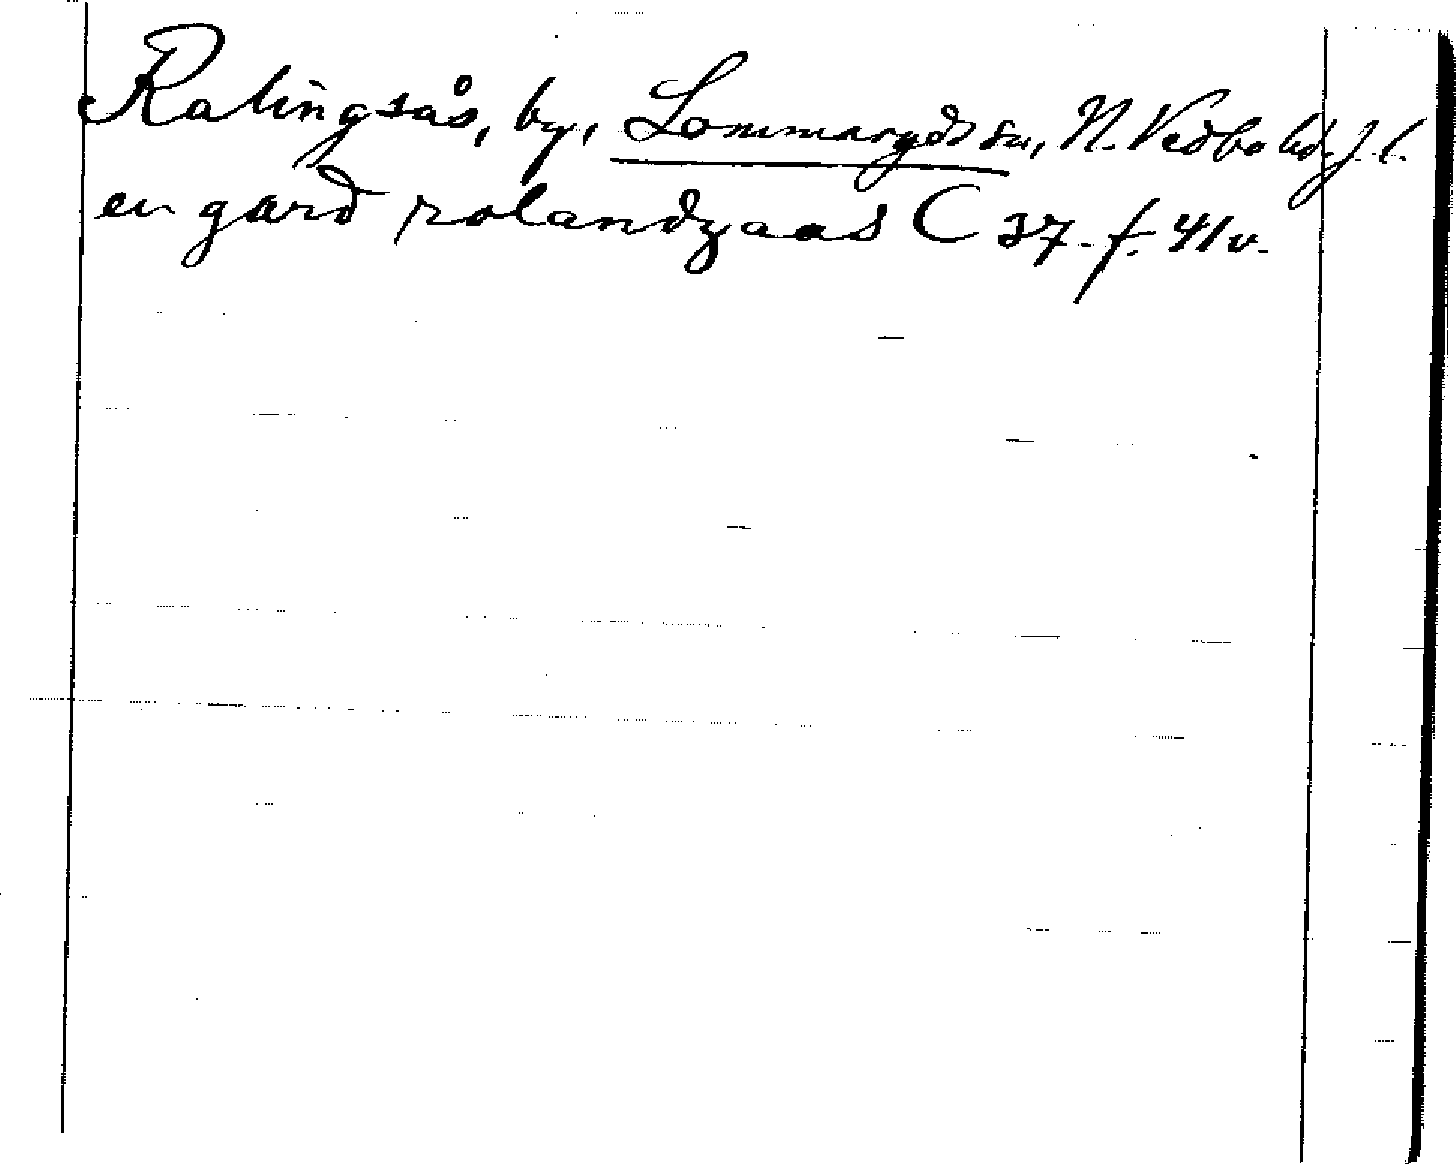 Ralingsås, by, Lommaryds sn, N. Vedbo hd. J. l.
en gard rolandzaas C 37. f. 41 v.